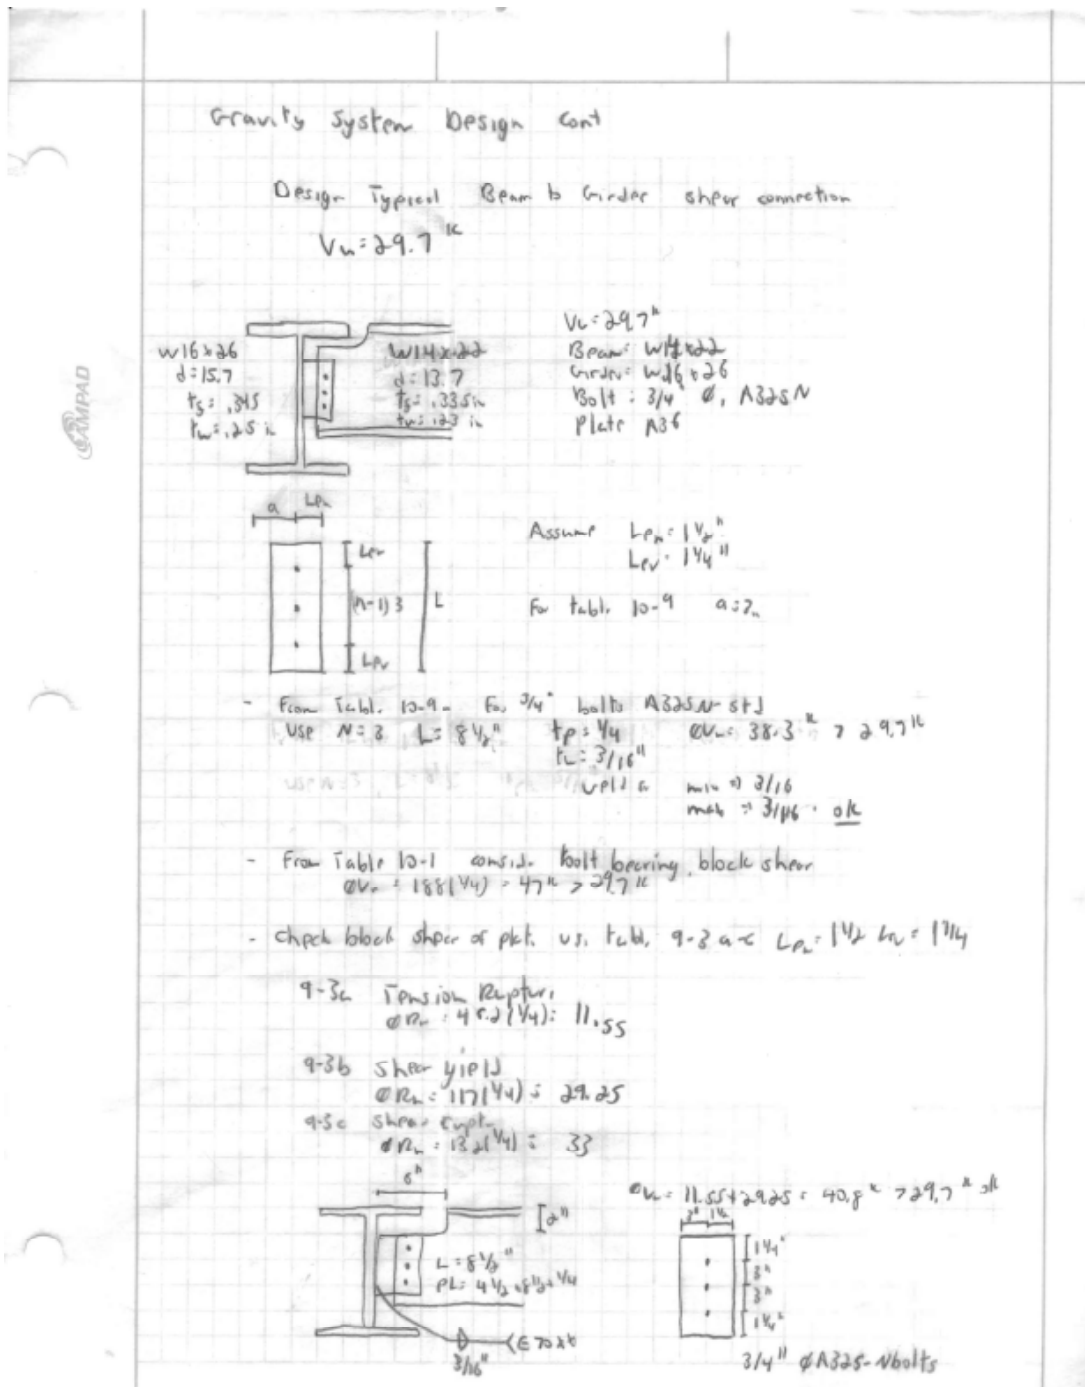 Gravity System Design Cont
Design Typical Beam to Girder shear connection
Vu = 29.7 k
CAMPAD
W16x26
d = 15.7
tf = .345
tw = .25 in
W14x22
d = 13.7
tf = .335 in
tw = .23 in
Vu = 29.7 k
Beam: W14x22
Girder: W16x26
Bolt: 3/4" Ø, A325N
Plate A36
a Leh
Lev
(n-1)3 L
Lev
Assume Leh = 1 1/2"
Lev = 1 1/4"
For table 10-9
- From Table 10-9 - For 3/4" bolts A325N-std
Use N=3 L = 8 1/2" tp = 1/4 ØVn = 38.3 k > 29.7 k
tw = 3/16"
weld min => 3/16
max => 3/16 ok
- From Table 10-1 consid. bolt bearing, block shear
ØVn = 188(1/4) = 47 k > 29.7 k
- Check block shear of plate us. tabl. 9-3 a-c Leh = 1 1/2 Lv = 1 1/4
9-3a Tension Rupture
ØRn = 46.2(1/4) = 11.55
9-3b Shear yield
ØRn = 117(1/4) = 29.25
9-3c Shear rupt.
ØRn = 132(1/4) = 33
ØVn = 11.55+29.25 = 40.8 k > 29.7 k ok
6"
2"
L = 8 1/2"
PL = 4 1/2 x 8 1/2 x 1/4
3/16"
E70XX
3" 1 1/2
1 1/4"
3"
3"
1 1/4"
3/4" Ø A325-N bolts